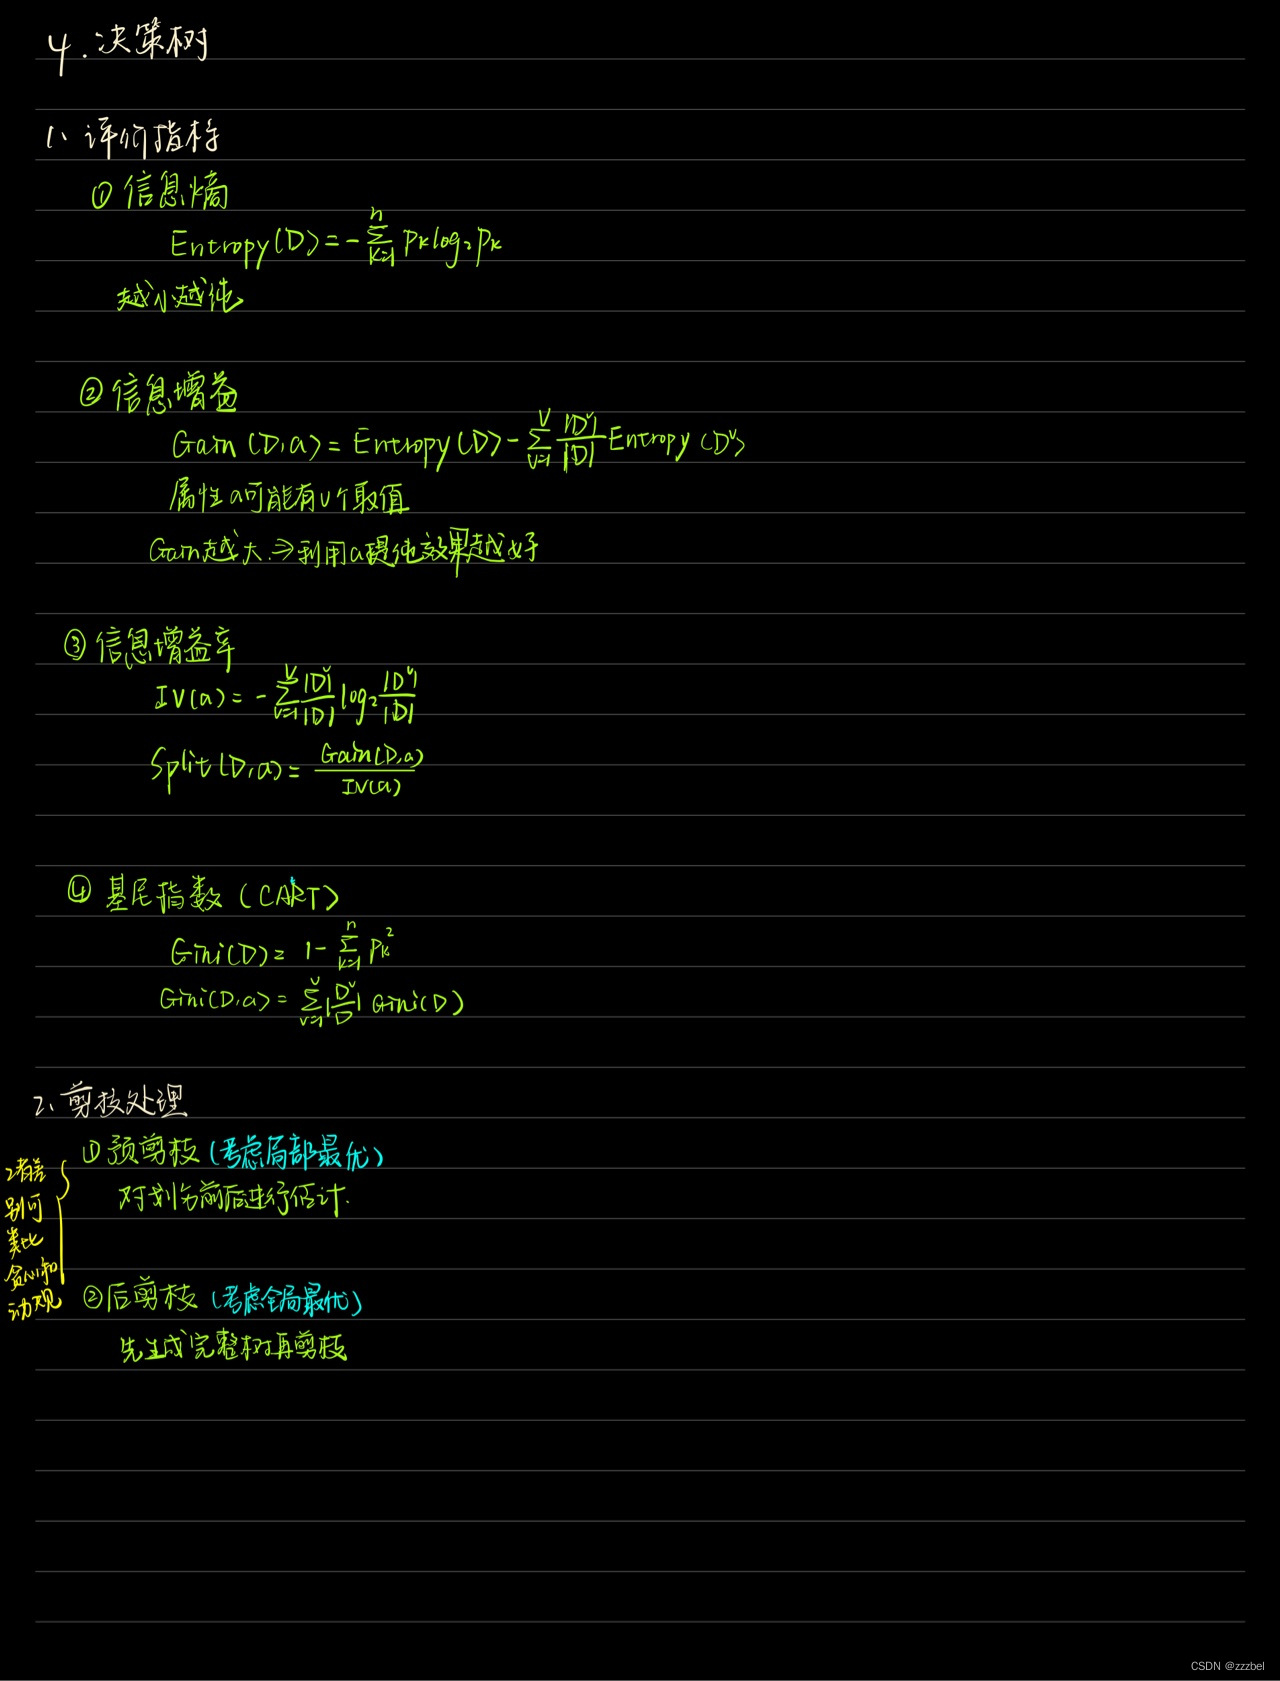 4.决策树
1、评价指标
① 信息熵
Entropy(D)=-∑_{k=1}^{n} p_k log_2 p_k
越小越纯
② 信息增益
Gain(D,a)=Entropy(D)-∑_{v=1}^{V} |D^v|/|D| Entropy(D^v)
属性a可能有v个取值
Gain越大⇒利用a提纯效果越好
③ 信息增益率
IV(a)=-∑_{v=1}^{V} |D^v|/|D| log_2 |D^v|/|D|
Split(D,a)=Gain(D,a)/IV(a)
④ 基尼指数(CART)
Gini(D)=1-∑_{k=1}^{n} p_k^2
Gini(D,a)=∑_{v=1}^{v} |D^v/D| Gini(D)
2、剪枝处理
① 预剪枝(考虑局部最优)
对划分前后进行估计.
2者差
别可
类比
贪心和
动规
② 后剪枝(考虑全局最优)
先生成完整树再剪枝
CSDN @zzzbel